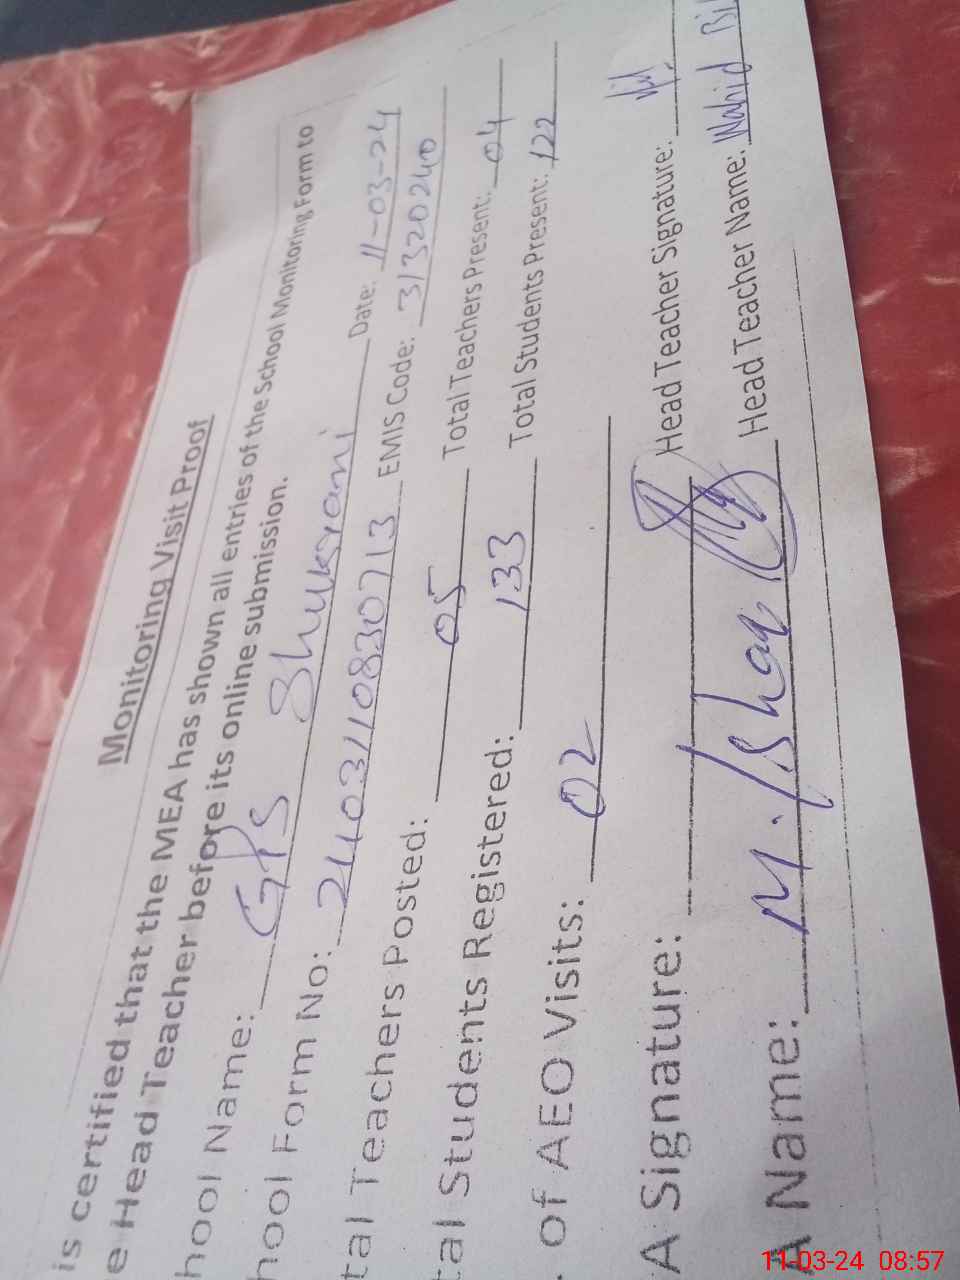 Monitoring Visit Proof
is certified that the MEA has shown all entries of the School Monitoring Form to
e Head Teacher before its online submission.
hool Name: GPS Shukrani Date: 11-03-24
hool Form No: 2403110830713 EMIS Code: 31320240
tal Teachers Posted: 05 Total Teachers Present: 04
tal Students Registered: 133 Total Students Present: 122
. of AEO Visits: 02
A Signature: Head Teacher Signature:
A Name: M. Ishaq Head Teacher Name: Nahid Bi
11-03-24 08:57